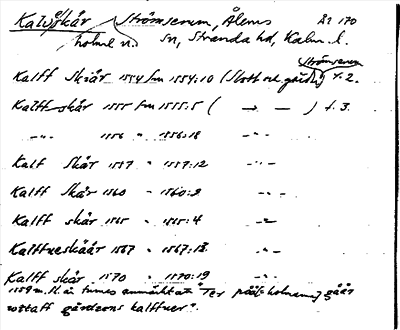 Kalvskär Strömserum, Ålems Ål 170
holme n. sn, Stranda hd, Kalm. l.
Strömserum
Kalff Skiär 1554 fm 1554:10 (Slott och gårdar) f. 2.
Kalff skär 1555 fm 1555:5 ( — — ) f. 3.
—"— 1556 " 1556:18 —"—
Kalf Skär 1557 " 1557:12 —"—
Kalff Skär 1560 " 1560:2 —"—
Kalff skär 1565 " 1565:4 —"—
Kalffueskäär 1567 " 1567:13 —"—
Kalff skär 1570 " 1570:19 —"—
1559 m. fl. år finnes anmärkt at "Ter på holmanne gåår
gårdzens kalffuer".